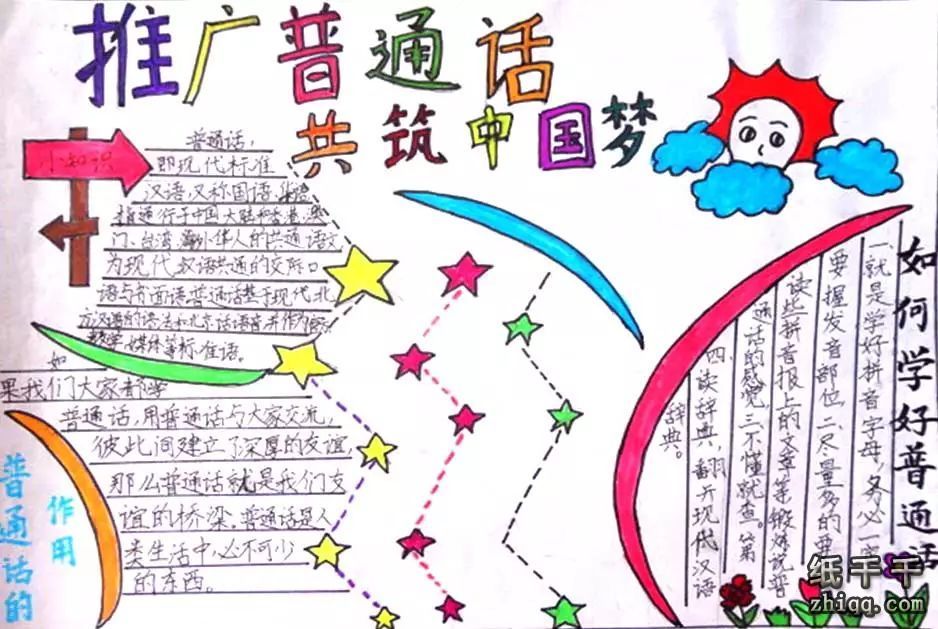 推广普通话
共筑中国梦
小知识
普通话,
即现代标准
汉语,又称国语、华语
指通行于中国大陆和香港、澳
门、台湾、海外华人的共通语文
为现代汉语共通的交际口
语与书面语.普通话基于现代北
方汉语的语法和北京话语音并作为
教学、媒体等标准语。
如
果我们大家都学
普通话,用普通话与大家交流,
彼此间建立了深厚的友谊,
那么普通话就是我们友
谊的桥梁。普通话是人
类生活中必不可少
的东西。
普通话的
作用
如何学好普通话
一.就是学好拼音字母,务必一字
要握发音部位,二.尽量多的要
读些拼音报上的文章等锻炼说普
通话的感觉,三.不懂就查。第
四.读辞典,翻开现代汉语
辞典。
纸千千
zhiqq.com